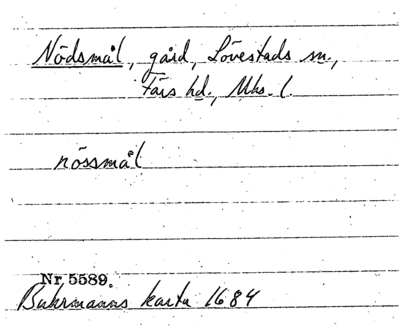 Nödsmål, gård, Lövestads sn.,
Färs hd., Mhs. l.
nössmål
Nr 5589.
Buhrmanns karta 1684